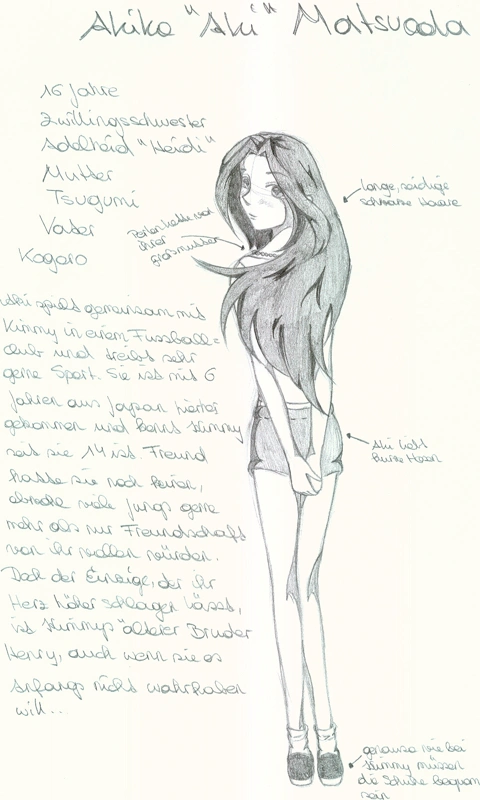 Akiko "Aki" Matsuoda
16 Jahre
Zwillingsschwester
Adelheid "Heidi"
Mutter
Tsugumi
Vater
Kogoro
Perlenkette von
ihrer
Grossmutter
lange, seidige
schwarze Haare
Aki spielt gemeinsam mit
Kimmy in einem Fussball=
club und treibt sehr
gerne Sport. Sie ist mit 6
Jahren aus Japan hierher
gekommen und kennt Kimmy
seit sie 14 ist. Freund
hatte sie noch keinen,
obwohl viele Jungs gerne
mehr als nur Freundschaft
von ihr wollen würden.
Doch der Einzige, der ihr
Herz höher schlagen lässt,
ist Kimmys älterer Bruder
Henry, auch wenn sie es
anfangs nicht wahrhaben
will...
Aki liebt
kurze Hosen
genauso wie bei
Kimmy müssen
die Schuhe bequem
sein